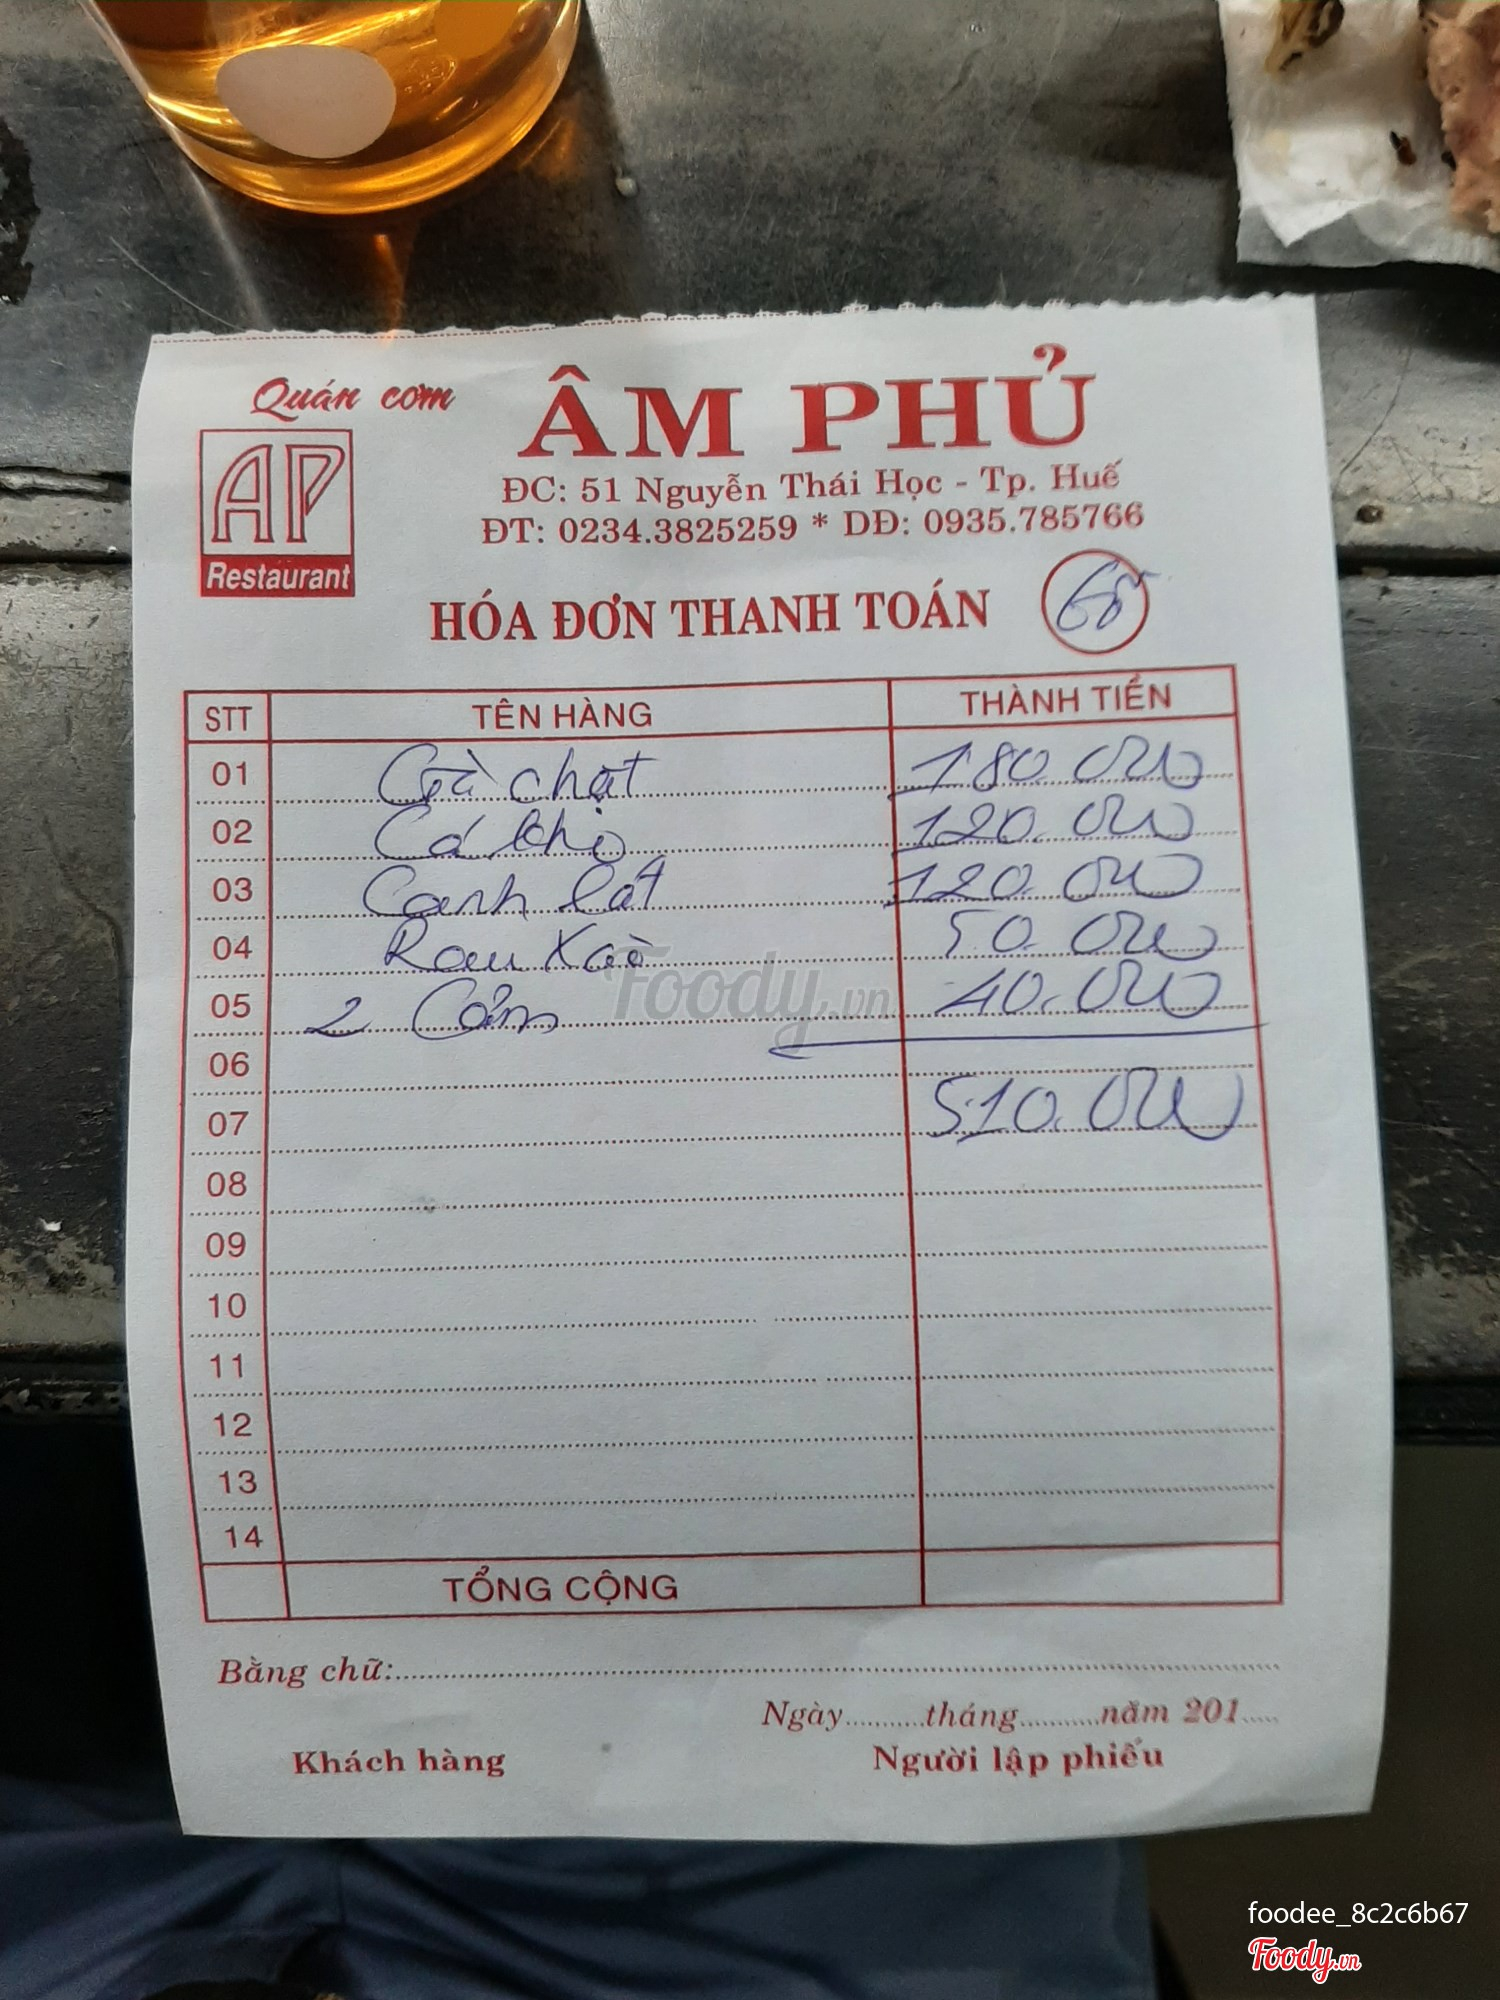 Quán cơm
ÂM PHỦ
AP
Restaurant
ĐC: 51 Nguyễn Thái Học - Tp. Huế
ĐT: 0234.3825259 * DĐ: 0935.785766
HÓA ĐƠN THANH TOÁN
STT TÊN HÀNG THÀNH TIỀN
01 Gà chặt 180.000
02 Cá kho 120.000
03 Canh lát 120.000
04 Rau Xào 50.000
05 2 Cơm 40.000
06
07 510.000
08
09
10
11
12
13
14
TỔNG CỘNG
Bằng chữ:
Ngày tháng năm 201
Khách hàng Người lập phiếu
Foody.vn
foodee_8c2c6b67
Foody.vn